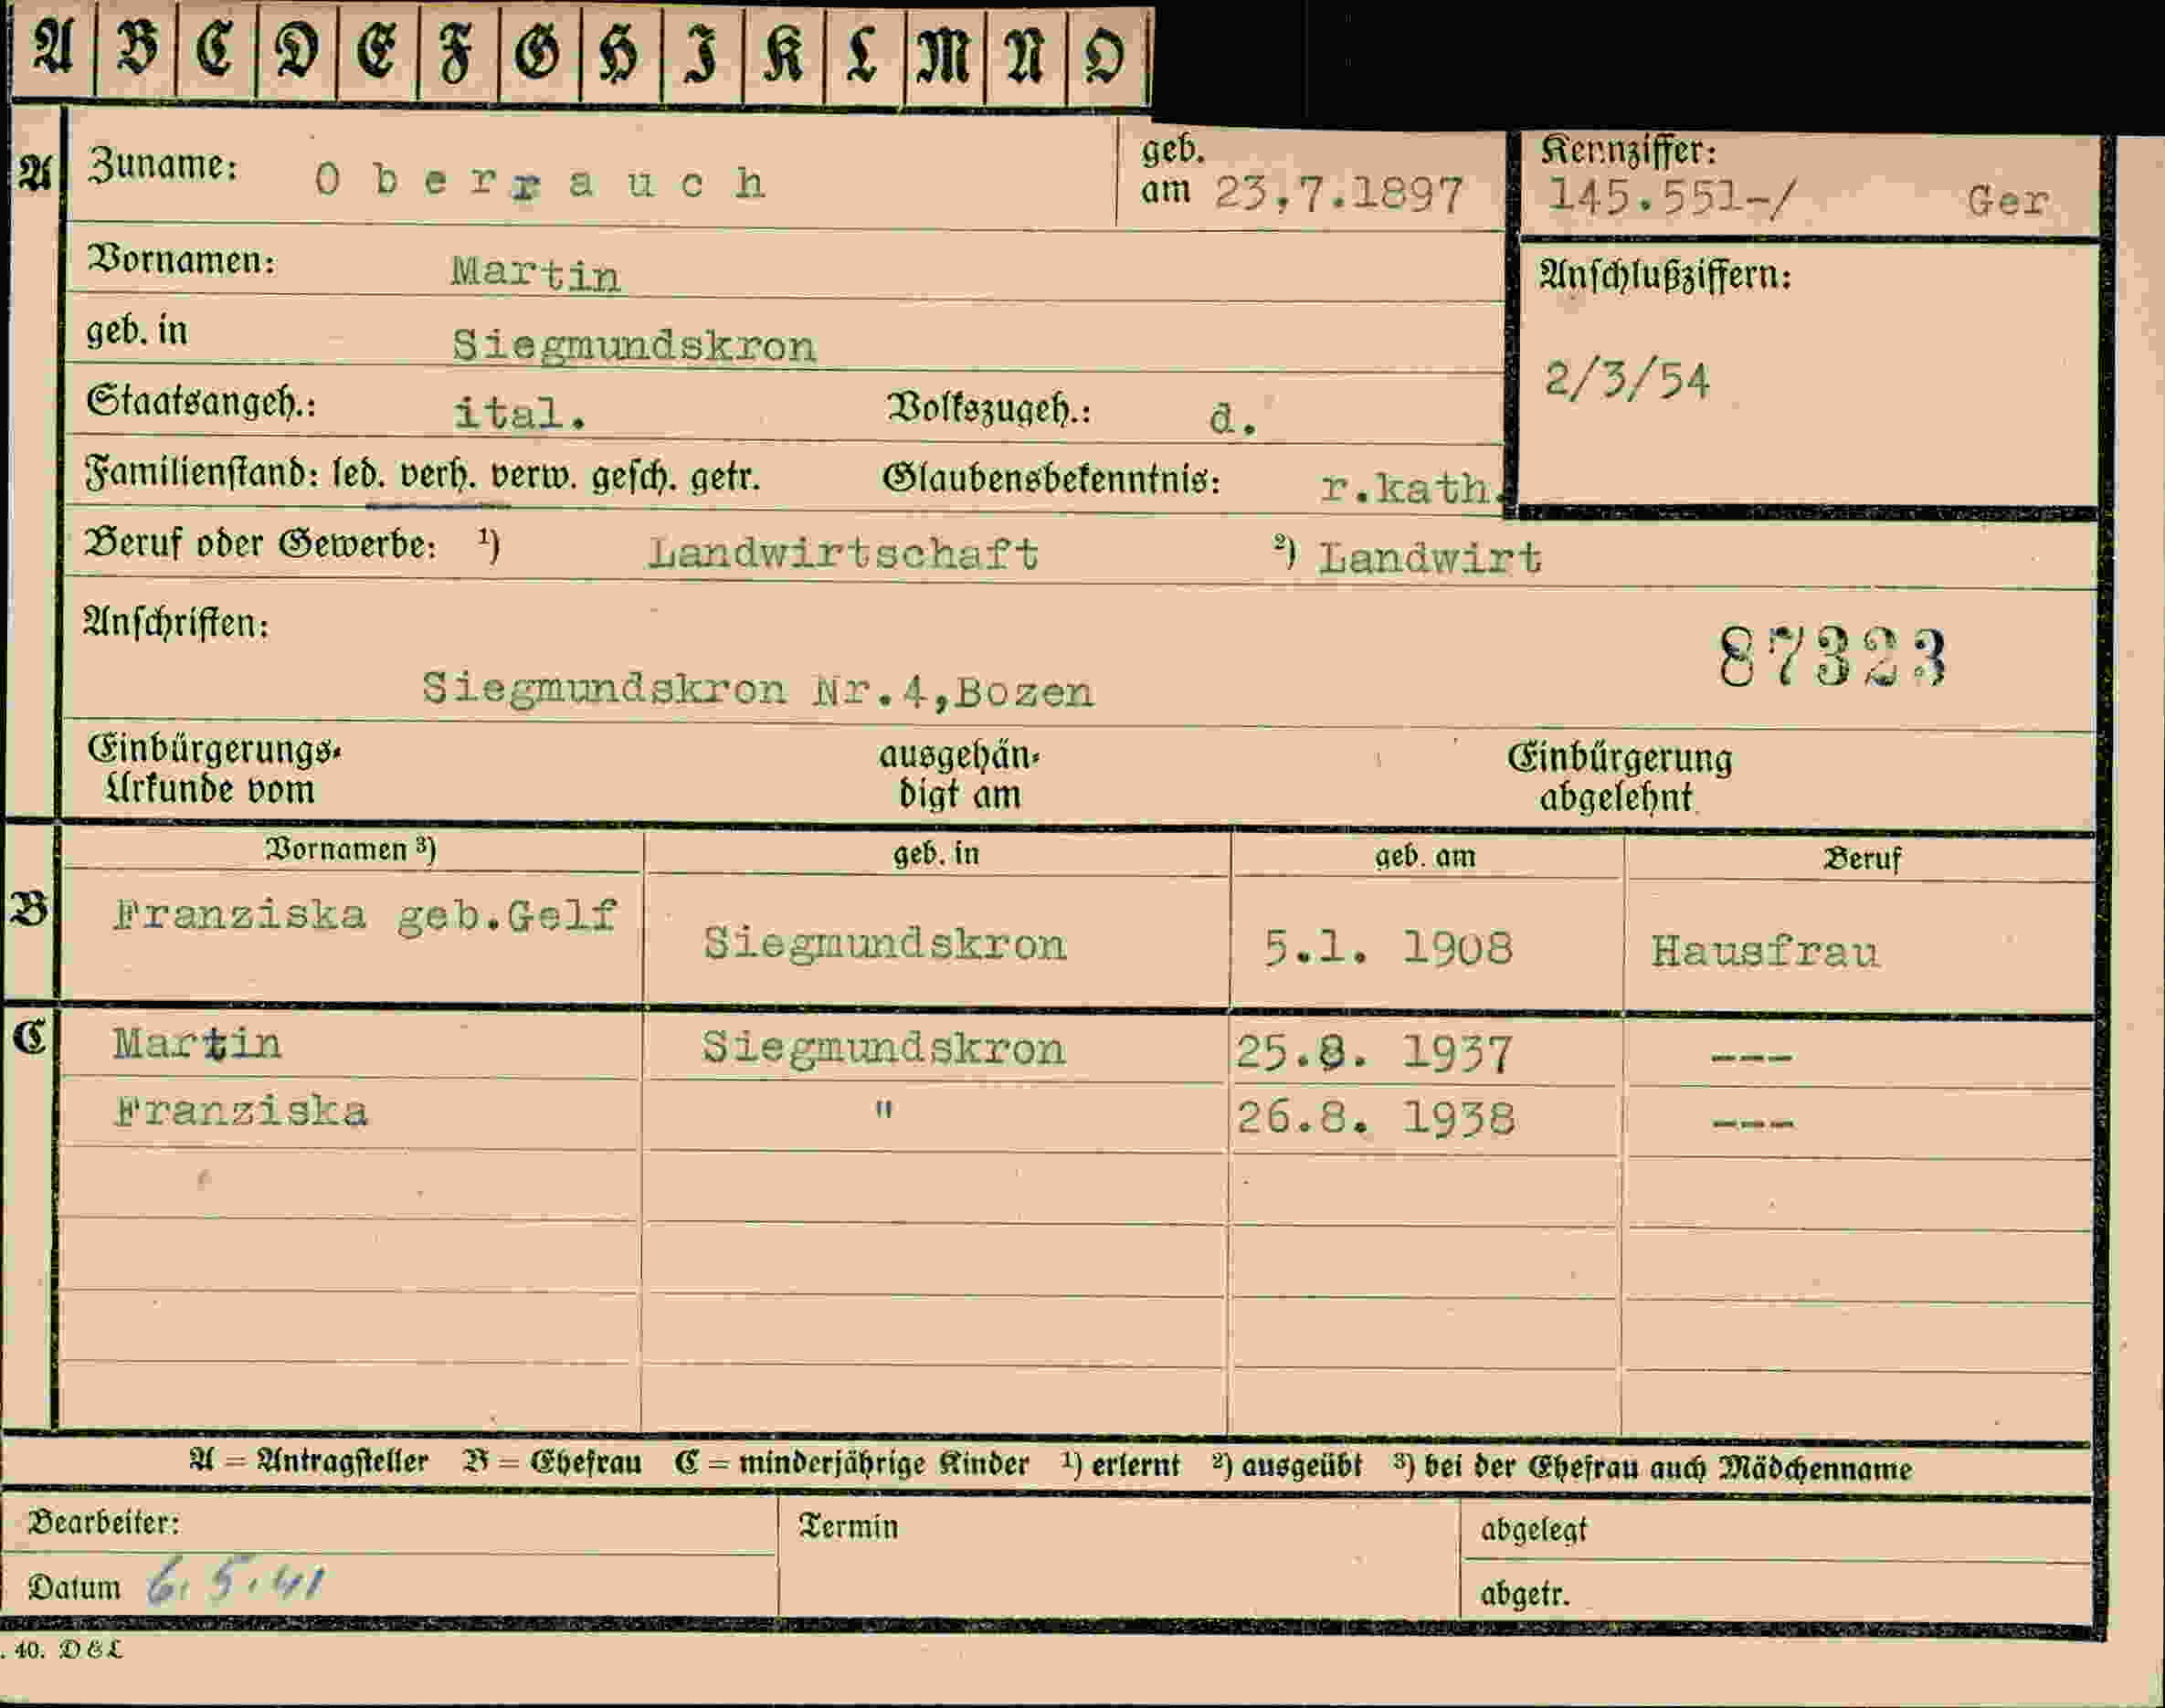 A B C D E F G H I K L M N O
A Zuname: Oberrauch geb. am 23.7.1897 Kennziffer: 145.551-/ Ger
Vornamen: Martin Anschlußziffern:
geb. in Siegmundskron
2/3/54
Staatsangeh.: ital. Volkszugeh.: d.
Familienstand: led. verh. verw. gesch. getr. Glaubensbekenntnis: r.kath.
Beruf oder Gewerbe: ¹) Landwirtschaft ²) Landwirt
Anschriften:
87323
Siegmundskron Nr.4,Bozen
Einbürgerungs- ausgehän- Einbürgerung
Urkunde vom digt am abgelehnt
Vornamen ³) geb. in geb. am Beruf
B Franziska geb.Gelf Siegmundskron 5.1. 1908 Hausfrau
C Martin Siegmundskron 25.8. 1937 ---
Franziska " 26.8. 1938 ---
A = Antragsteller B = Ehefrau C = minderjährige Kinder ¹) erlernt ²) ausgeübt ³) bei der Ehefrau auch Mädchenname
Bearbeiter: Termin abgelegt
Datum 6.5.41 abgetr.
. 40. DEL